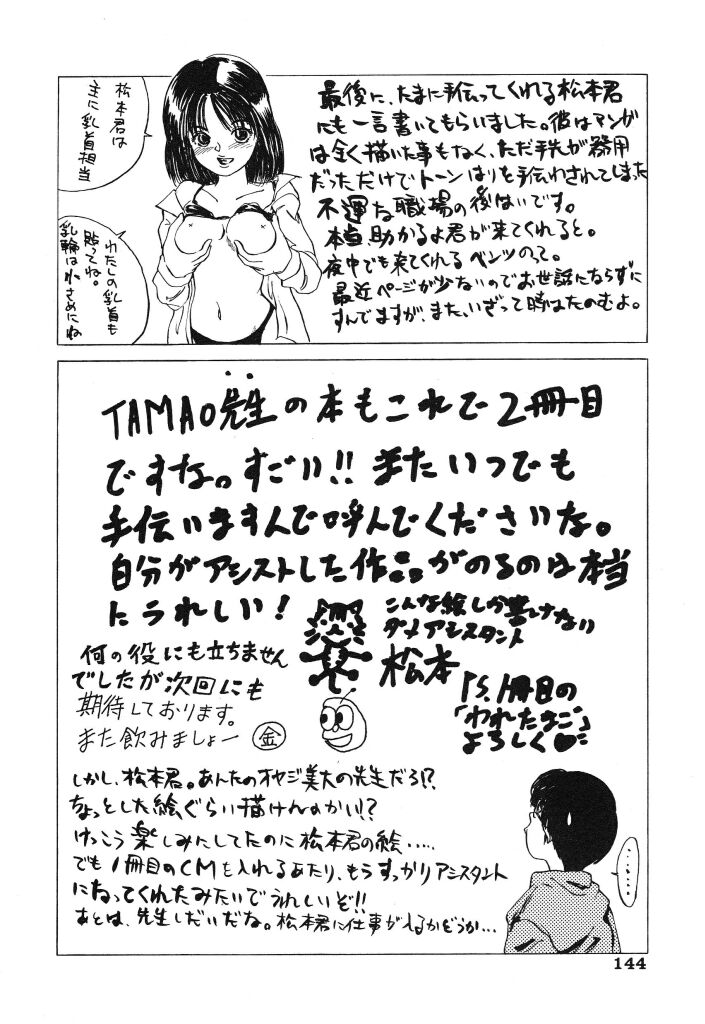 最後に、たまに手伝ってくれる松本君
にも一言書いてもらいました。彼はマンガ
は全く描いた事もなく、ただ手先が器用
だっただけでトーンはりを手伝わされてしまった
不運な職場の後はいです。
本当助かるよ君が来てくれると。
夜中でも来てくれるベンツのって。
最近ページが少ないのでお世話にならずに
すんでますが、また、いざって時はたのむよ。
松本君は
主に乳首担当
わたしの乳首も
貼ってね。
乳輪は小さめにね
TAMAO先生の本もこれで2冊目
ですな。すごい!!またいつでも
手伝いますんで呼んでくださいな。
自分がアシストした作品がのるのは本当
にうれしい!
こんな絵しか書けない
ダメアシスタント
松本
P.S.1冊目の
「われたまご」
よろしく
何の役にも立ちません
でしたが次回にも
期待しております。
また飲みましょー
金
しかし、松本君。あんたのオヤジ美大の先生だろ!?
ちょっとした絵ぐらい描けんのかい!?
けっこう楽しみにしてたのに松本君の絵・・・・・
でも1冊目のCMを入れるあたり、もうすっかりアシスタント
になってくれたみたいでうれしいぞ!!
あとは、先生しだいだな。松本君に仕事が入るかどうか・・・
・・・・・・
144